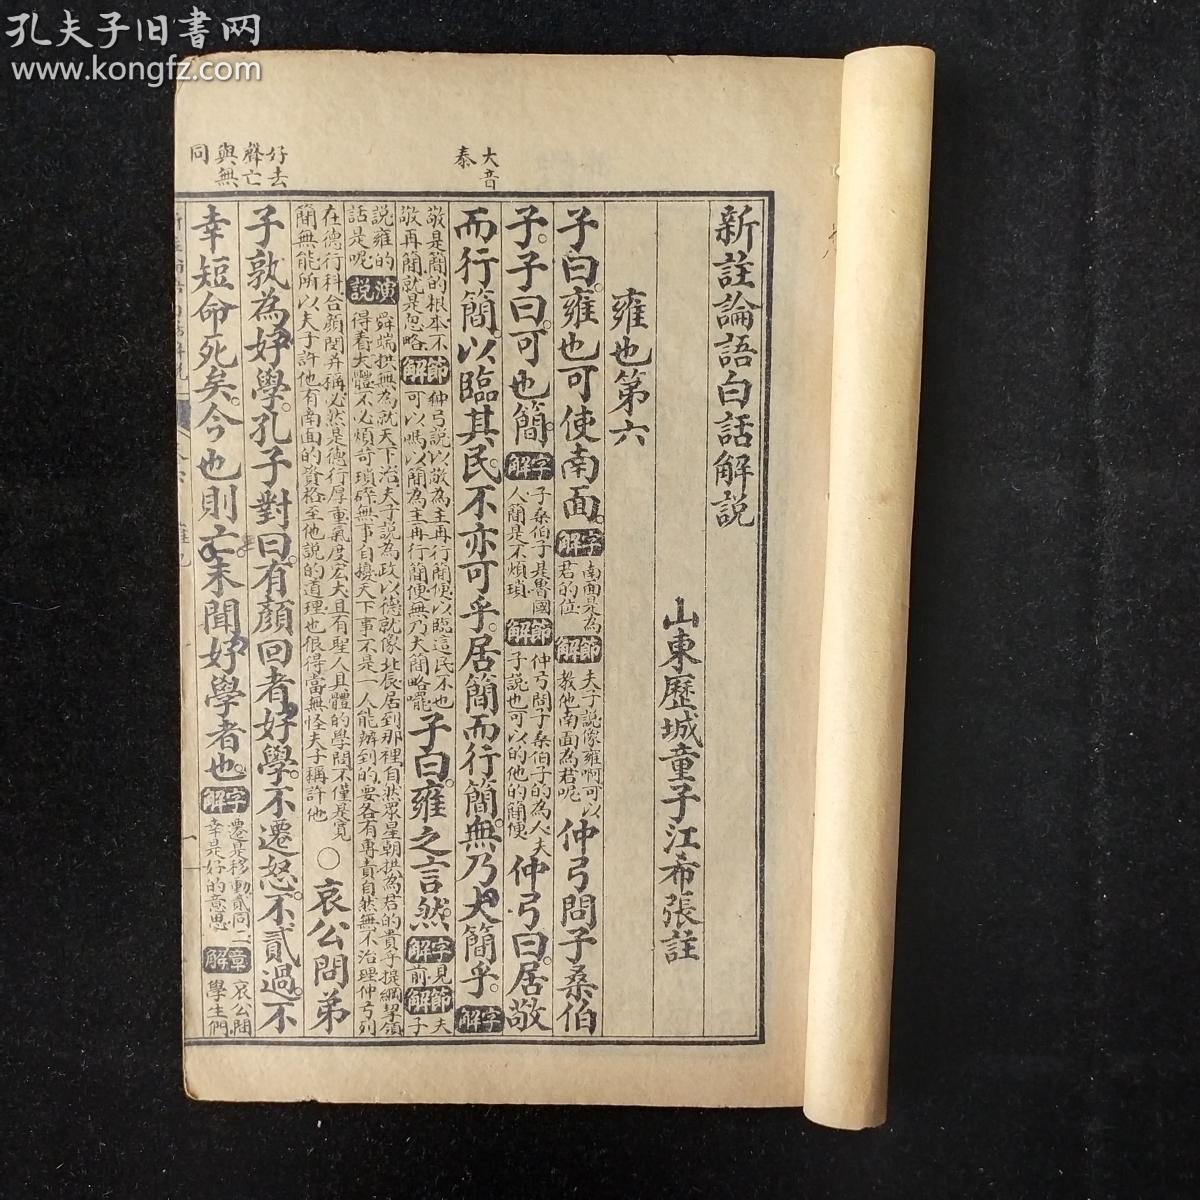 孔夫子旧书网
www.kongfz.com
大音
泰
好去
聲亡
與無
同
新註論語白話解説
山東歷城童子江希張註
雍也第六
子曰。雍也可使南面。字解南面是為君的位節解夫子說像雍啊可以教他南面為君呢仲弓問子桑伯
子。子曰。可也簡。字解子桑伯子是魯國人簡是不煩瑣節解仲弓問子桑伯子的為人夫子說也可以的他的簡便仲弓曰。居敬
而行簡。以臨其民。不亦可乎。居簡而行簡。無乃大簡乎。字解
敬是簡的根本不敬再簡就是忽略節解仲弓說以敬為主再行簡便以臨這民不也可以嗎以簡為主再行簡便無乃大簡略嚁子曰。雍之言然。字解見前節解夫子
說雍的話是呢演説舜端拱無為就天下治夫子說為政以德就像北辰居到那裡自然眾星朝拱為君的貴乎提綱挈領得着大體不必煩苛瑣碎無事自擾天下事不是一人能辦到的要各有專責自然無不治理仲弓列
在德行科合顏閔并稱必然是德行厚重氣度宏大且有聖人具體的學問不僅是寬簡無能所以夫子許他有南面的資格至他說的道理也很得當無怪夫子稱許他○哀公問弟
子孰為好學。孔子對曰。有顏回者好學。不遷怒。不貳過。不
幸短命死矣。今也則亡。未聞好學者也。字解遷是移動貳同二幸是好的意思章解哀公問學生們